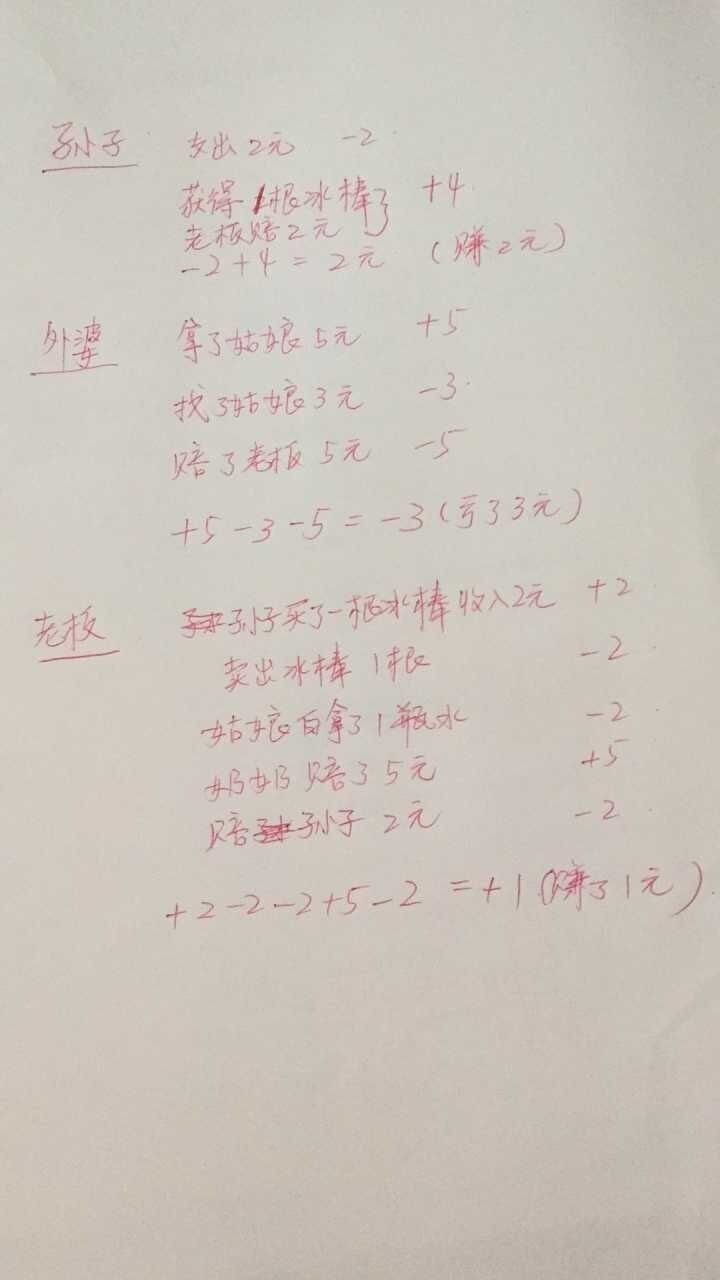 孙小子 支出2元 -2
获得1根冰棒 +4
老板赔2元
-2+4=2元 (赚2元)
外婆 拿了姑娘5元 +5
找了姑娘3元 -3
赔了老板5元 -5
+5-3-5=-3(亏了3元)
老板 孙小子买了一根冰棒收入2元 +2
卖出冰棒1根 -2
姑娘白拿了1瓶水 -2
奶奶赔了5元 +5
赔孙小子2元 -2
+2-2-2+5-2=+1(赚了1元)